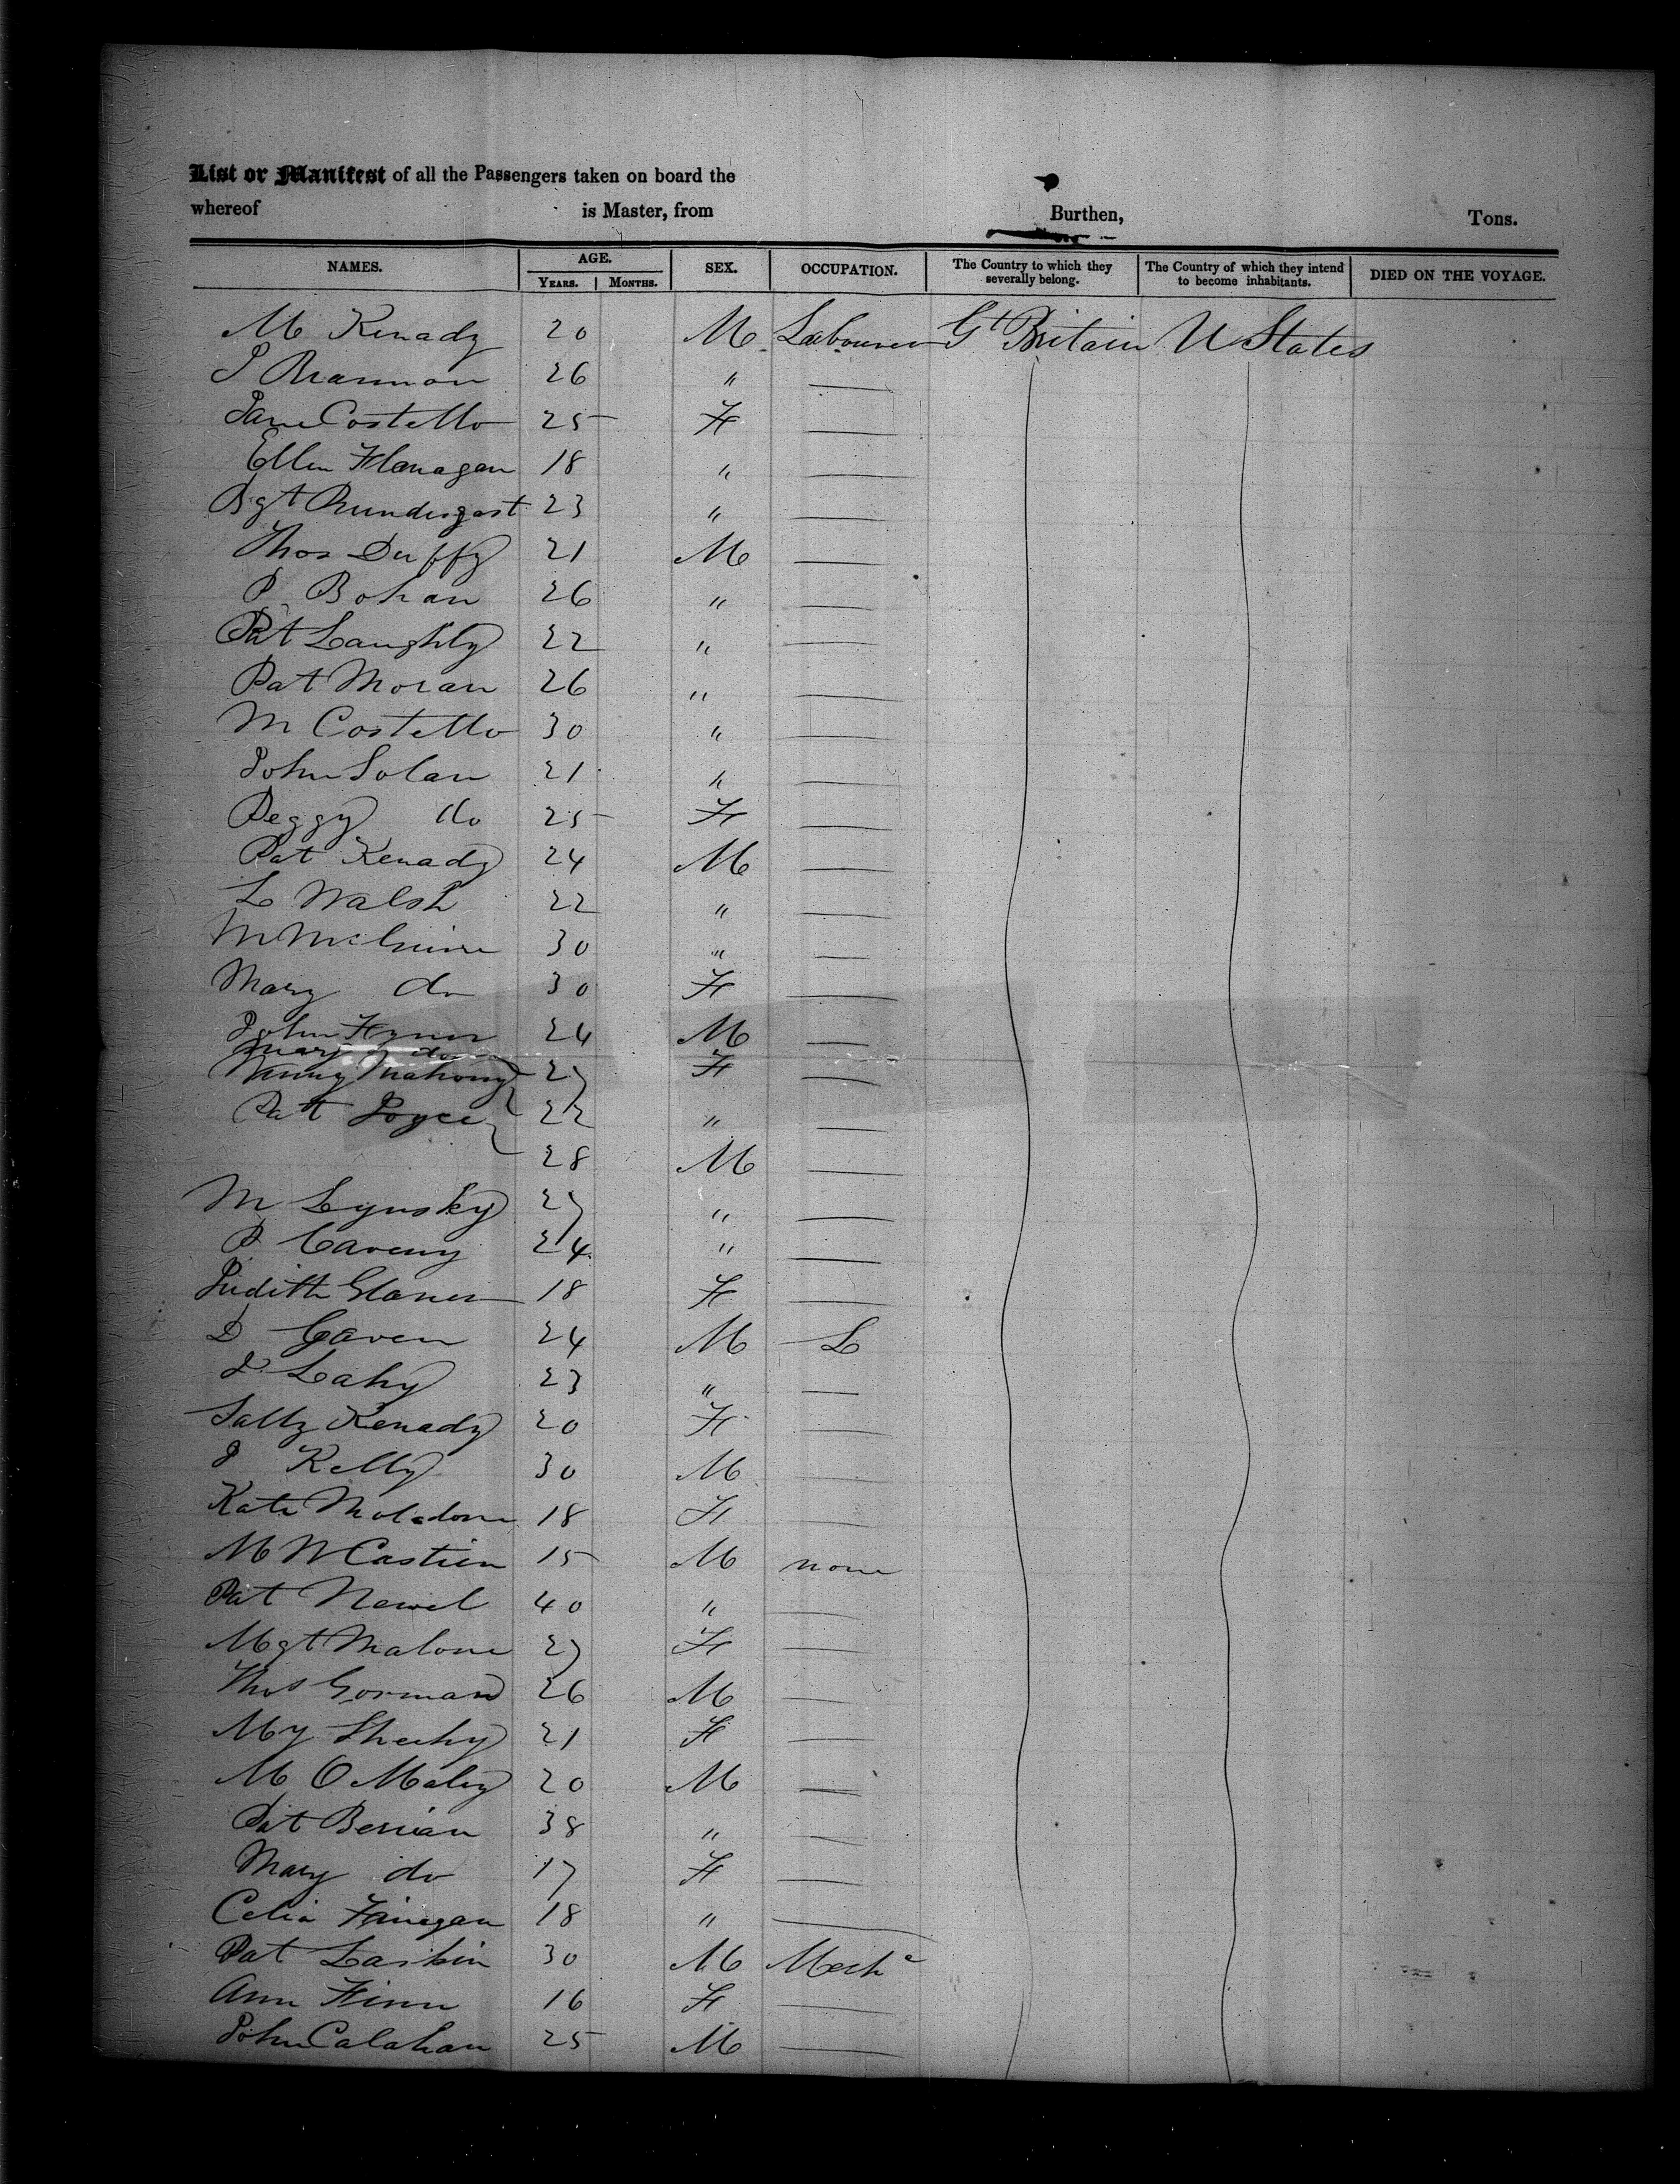 List or Manifest of all the Passengers taken on board the
whereof is Master, from Burthen, Tons.
NAMES. AGE. SEX. OCCUPATION. The Country to which they severally belong. The Country of which they intend to become inhabitants. DIED ON THE VOYAGE.
YEARS. MONTHS.
M Kenady 20 M Labourer Gt Britain U States
J Brannon 26 "
Jane Costello 25 F
Ellen Flanagan 18 "
Bgt Prundergast 23 "
Thos Duffy 21 M
P Bohan 26 "
Pat Laughly 22 "
Pat Moran 26 "
M Costello 30 "
John Solan 21 "
Peggy do 25 F
Pat Kenady 24 M
L Walsh 22 "
M McGuire 30 "
Mary do 30 F
John Flynn 24 M
Mary do
Nanny Mahony 27 F
Pat Joyce 22 "
28 M
M Lynsky 27 "
P Caveny 24 "
Judith Glaner 18 F
D Caven 24 M L
J Lahy 23 "
Sally Kenady 20 F
J Kelly 30 M
Kate Muldoon 18 F
M W Castien 15 M none
Pat Newel 40 "
Mgt Malone 27 F
Thos Gorman 26 M
My Sheehy 21 F
M O Maley 20 M
Pat Berian 38 "
Mary do 17 F
Celia Finegan 18 "
Pat Larkin 30 M Mechc
Ann Finn 16 F
John Calahan 25 M